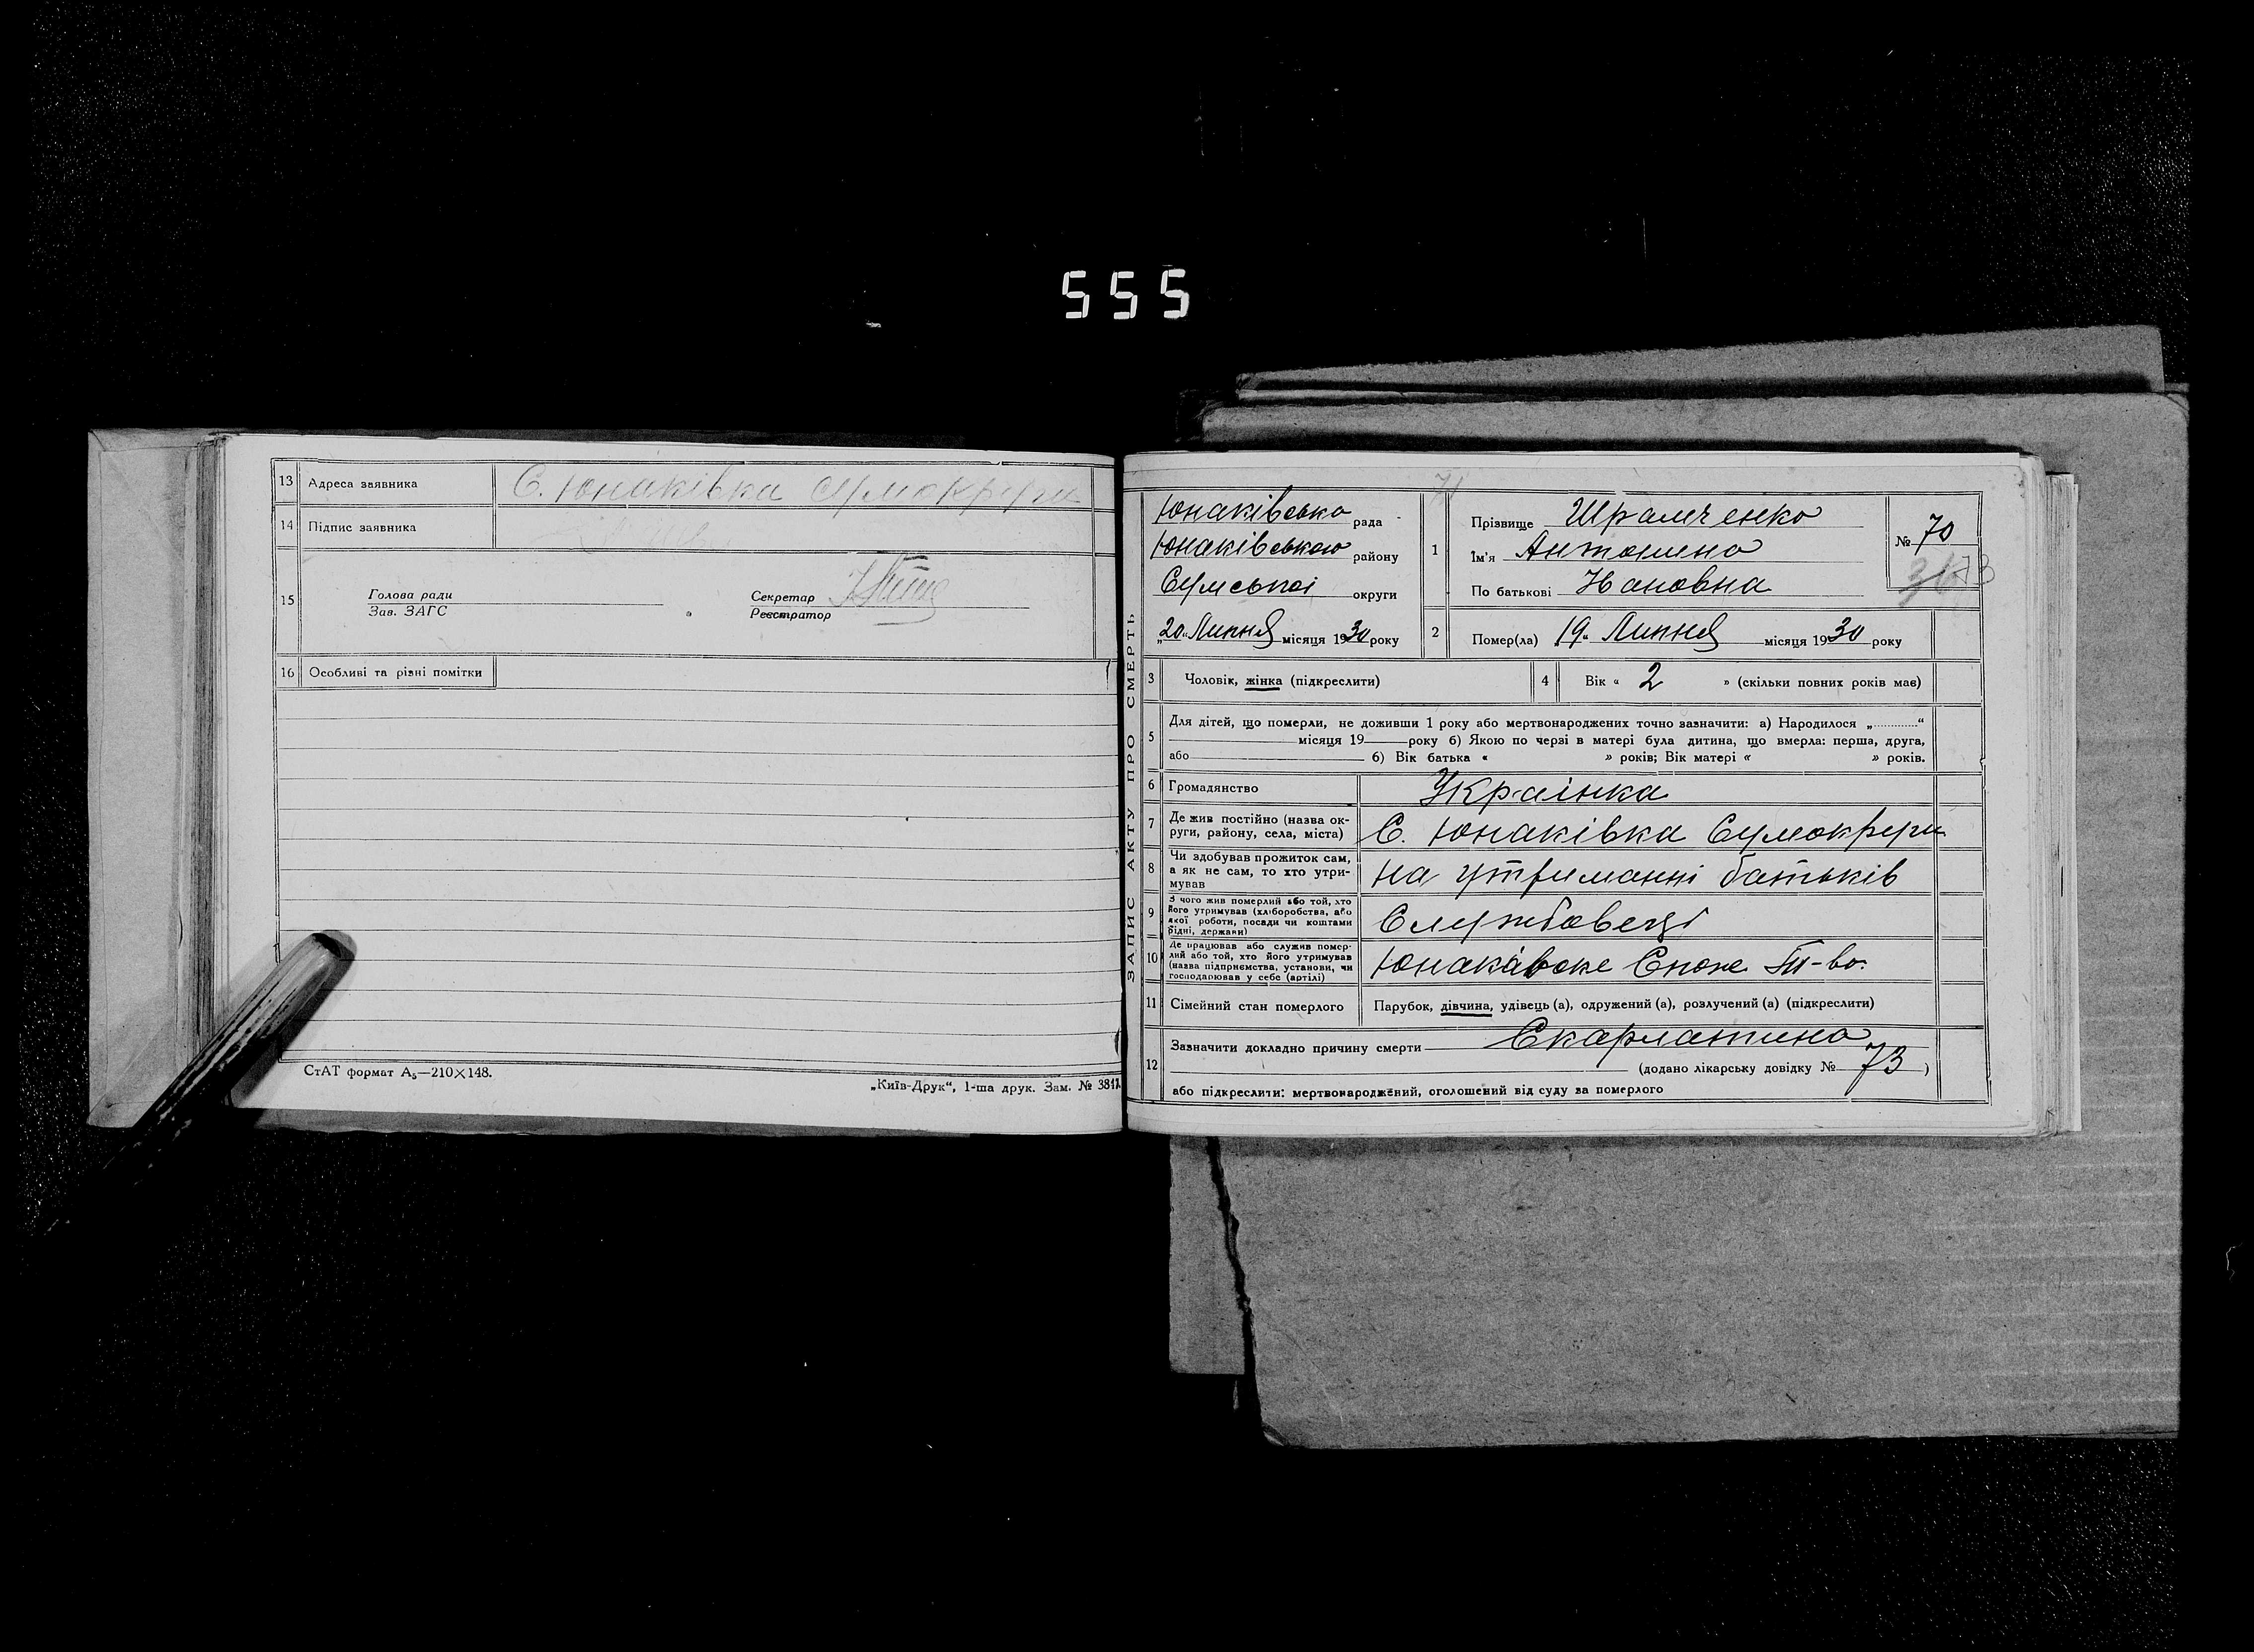 555
13 Адреса заявника С. Юнаківка Сумокруги
14 Підпис заявника
15 Голова ради
Зав. ЗАГС
Секретар
Реєстратор
16 Особливі та різні помітки
СтАТ формат А₅—210×148.
„Київ-Друк“, 1-ша друк. Зам. № 3811
ЗАПИС АКТУ ПРО СМЕРТЬ
71
Юнаківська рада
Юнаківського району
Сумської округи
„20“ Липня місяця 1930 року
1 Прізвище Шрамченко
Ім'я Антонина
По батькові Ивановна
№ 70
73
2 Помер(ла) „19“ Липня місяця 1930 року
3 Чоловік, жінка (підкреслити)
4 Вік « 2 » (скільки повних років має)
5 Для дітей, що померли, не доживши 1 року або мертвонароджених точно зазначити: а) Народилося „............“
місяця 19 року б) Якою по черзі в матері була дитина, що вмерла: перша, друга,
або б) Вік батька « » років; Вік матері « » років.
6 Громадянство Українка
7 Де жив постійно (назва ок-
руги, району, села, міста) С. Юнаківка Сумокруги
8 Чи здобував прожиток сам,
а як не сам, то хто утри-
мував на утриманні батьків
9 З чого жив померлий або той, хто
його утримував (хліборобства, або
якої роботи, посади чи коштами
рідні, держави) Службовеці
10 Де працював або служив помер-
лий або той, хто його утримував
(назва підприємства, установи, чи
господарював у себе (артілі) Юнаківське Спож. Т-во.
11 Сімейний стан померлого Парубок, дівчина, удівець (а), одружений (а), розлучений (а) (підкреслити)
12 Зазначити докладно причину смерти Скарлатина
(додано лікарську довідку № 73)
або підкреслити: мертвонароджений, оголошений від суду за померлого